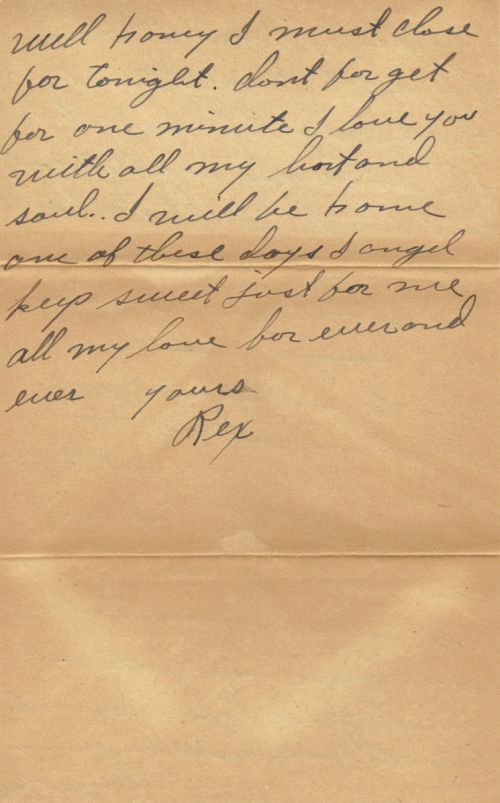 well honey I must close
for tonight. dont forget
for one minute I love you
with all my hart and
soul.. I will be home
one of these days angel
keep sweet just for me
all my love for ever and
ever yours
Rex